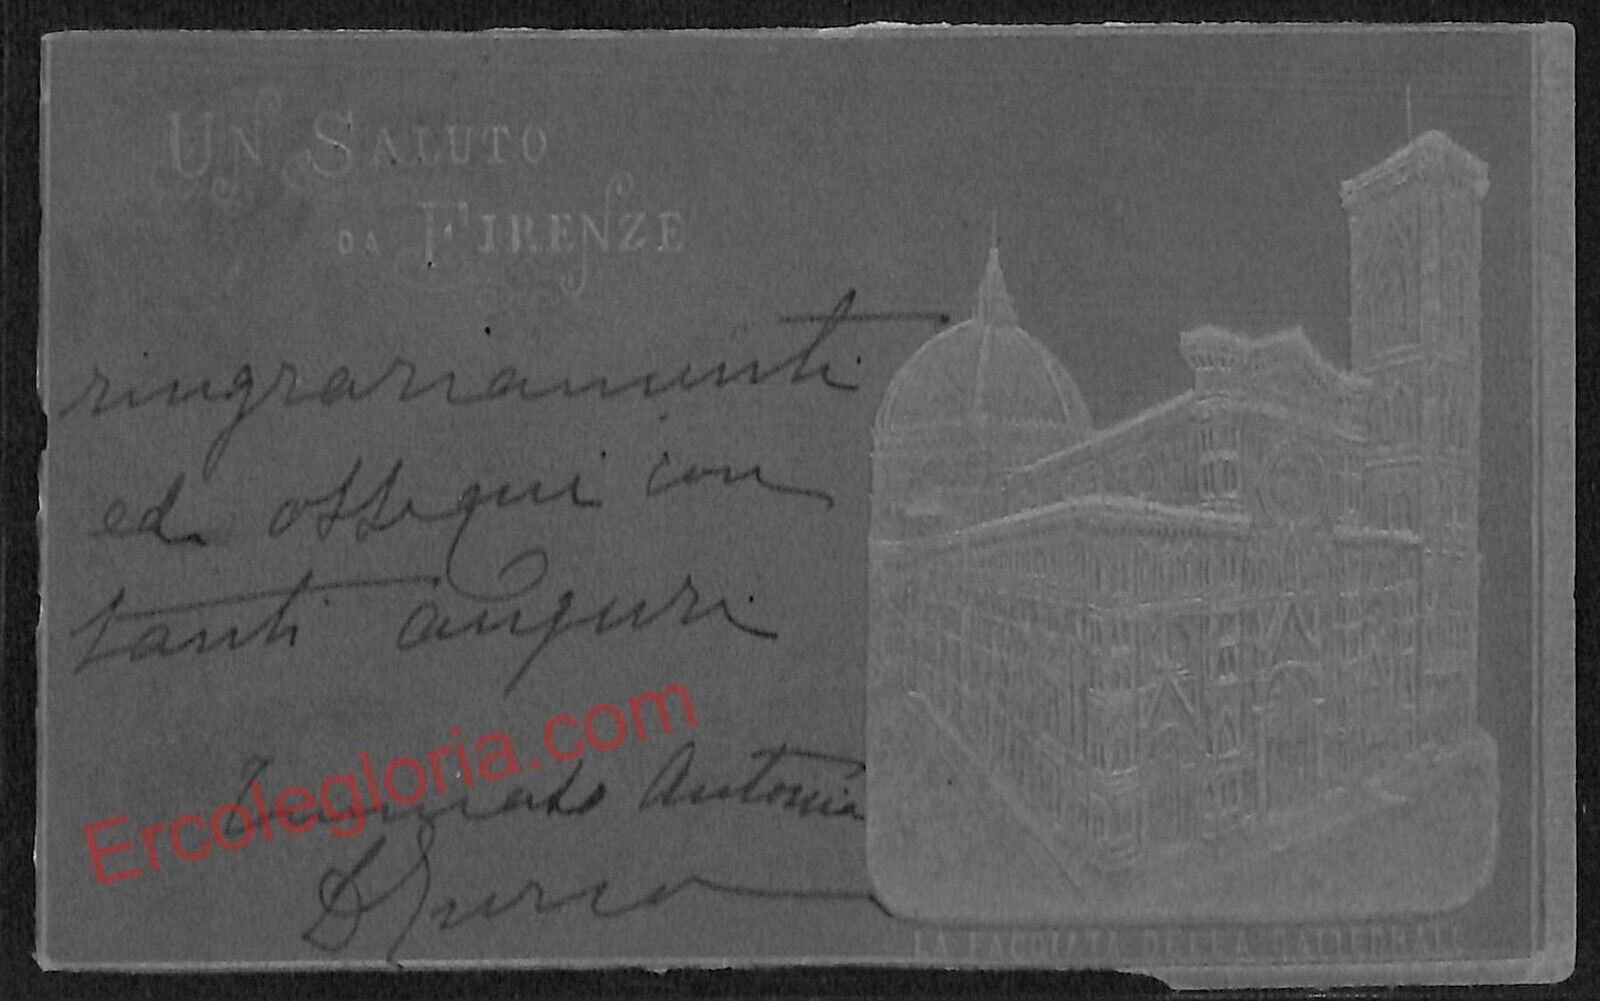 UN SALUTO
DA FIRENZE
ringraziamenti
ed ossequi con
tanti auguri
Antonia
Ercolegloria.com
LA FACCIATA DELLA CATTEDRALE